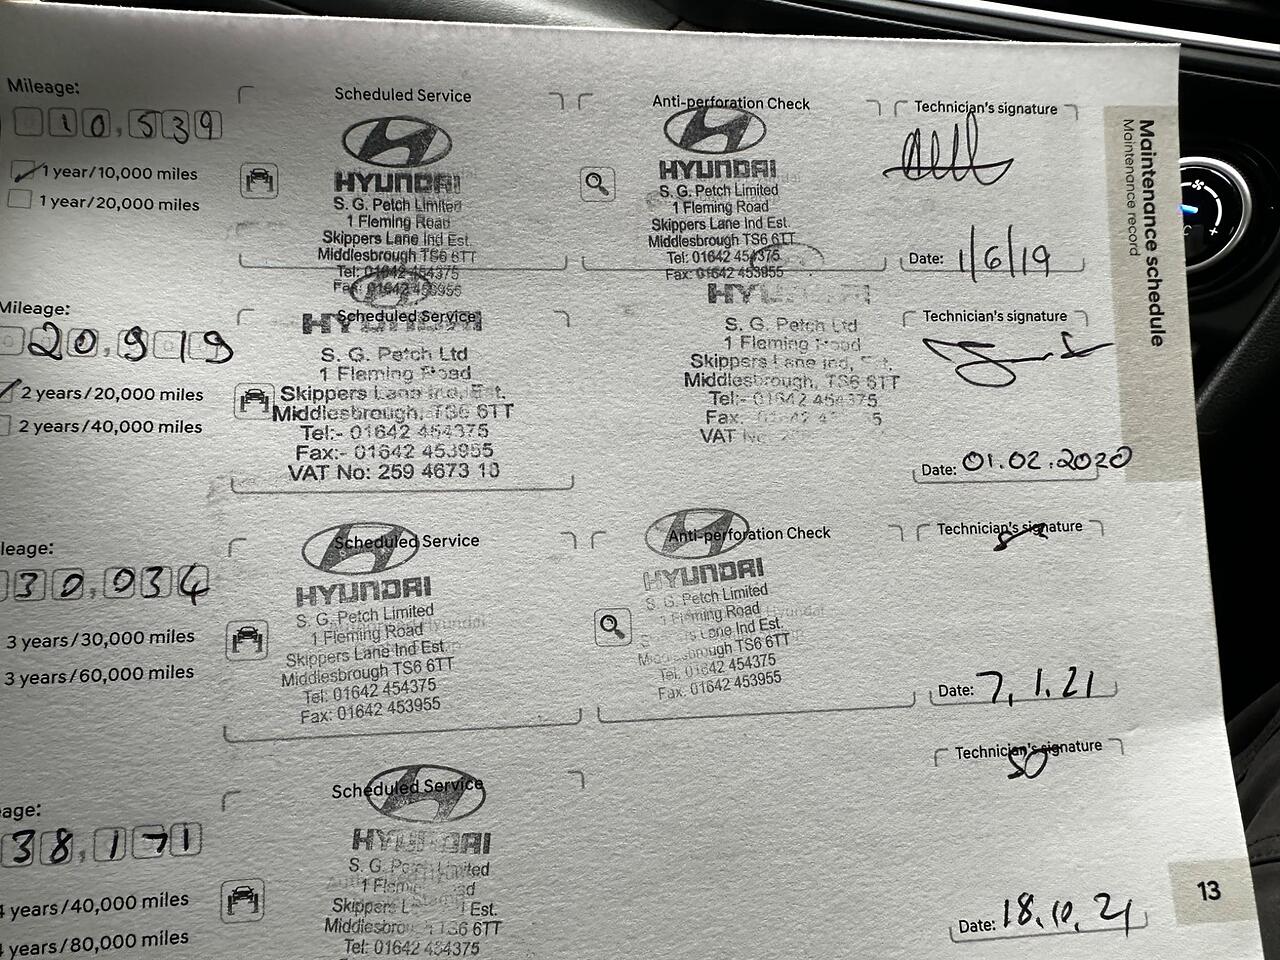 Mileage:
10,539
1 year/10,000 miles
1 year/20,000 miles
Scheduled Service
HYUNDAI
S. G. Petch Limited
1 Fleming Road
Skippers Lane Ind Est.
Middlesbrough TS6 6TT
Tel: 01642 454375
Fax: 01642 453955
Anti-perforation Check
HYUNDAI
S. G. Petch Limited
1 Fleming Road
Skippers Lane Ind Est.
Middlesbrough TS6 6TT
Tel: 01642 454375
Fax: 01642 453955
Technician's signature
Date: 1/6/19
Maintenance schedule
Maintenance record
Mileage:
20,919
2 years/20,000 miles
2 years/40,000 miles
Scheduled Service
HYUNDAI
S. G. Petch Ltd
1 Fleming Road
Skippers Lane Ind, Est.
Middlesbrough, TS6 6TT
Tel:- 01642 454375
Fax:- 01642 453955
VAT No: 259 4673 10
HYUNDAI
S. G. Petch Ltd
1 Fleming Road
Skippers Lane Ind, Est.
Middlesbrough, TS6 6TT
Tel:- 01642 454375
Fax:
VAT No:
Technician's signature
Date: 01.02.2020
leage:
30,034
3 years/30,000 miles
3 years/60,000 miles
Scheduled Service
HYUNDAI
S. G. Petch Limited
1 Fleming Road
Skippers Lane Ind Est.
Middlesbrough TS6 6TT
Tel: 01642 454375
Fax: 01642 453955
Anti-perforation Check
HYUNDAI
S. G. Petch Limited
1 Fleming Road
Lane Ind Est.
Middlesbrough TS6 6TT
Tel: 01642 454375
Fax: 01642 453955
Technician's signature
Date: 7.1.21
eage:
38,171
4 years/40,000 miles
years/80,000 miles
Scheduled Service
HYUNDAI
S. G. Petch Limited
1 Fleming Road
Skippers Lane Ind Est.
Middlesbrough TS6 6TT
Tel: 01642 454375
Technician's signature
SO
Date: 18.10.21
13